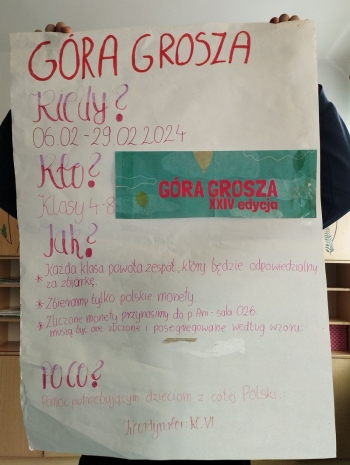 GÓRA GROSZA
Kiedy?
06.02-29.02.2024
Kto?
Klasy 4-8
GÓRA GROSZA
XXIV edycja
Jak?
* Każda klasa powoła zespół, który będzie odpowiedzialny
za zbiórkę.
* Zbieramy tylko polskie monety.
* Zliczone monety przynosimy do p. Ani - sala 026.
muszą być one zliczone i posegregowane według wzoru.
PO CO?
Pomoc potrzebującym dzieciom z całej Polski.
kl. VI